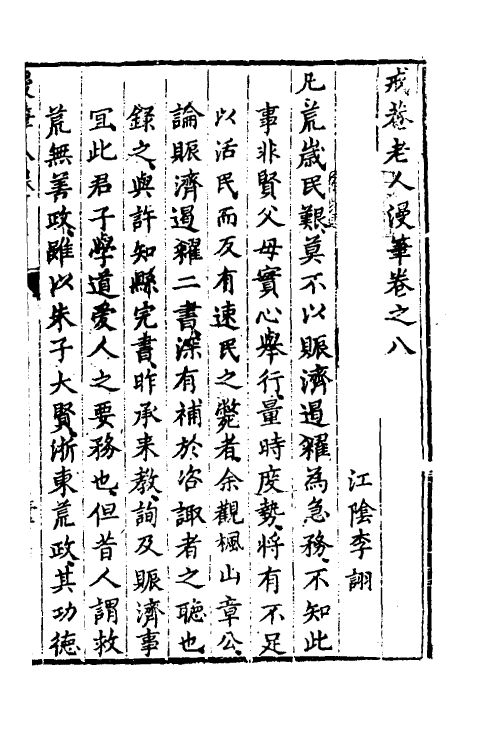 戒菴老人漫筆卷之八
江陰李詡
凡荒歲民艱莫不以賑濟遏糴為急務不知此
事非賢父母實心舉行量時度勢將有不足
以活民而反有速民之斃者余觀楓山章公
論賑濟遏糴二書深有補於咨諏者之聽也
錄之與許知縣完書昨承来教詢及賑濟事
宜此君子學道愛人之要務也但昔人謂救
荒無善政雖以朱子大賢浙東荒政其功德